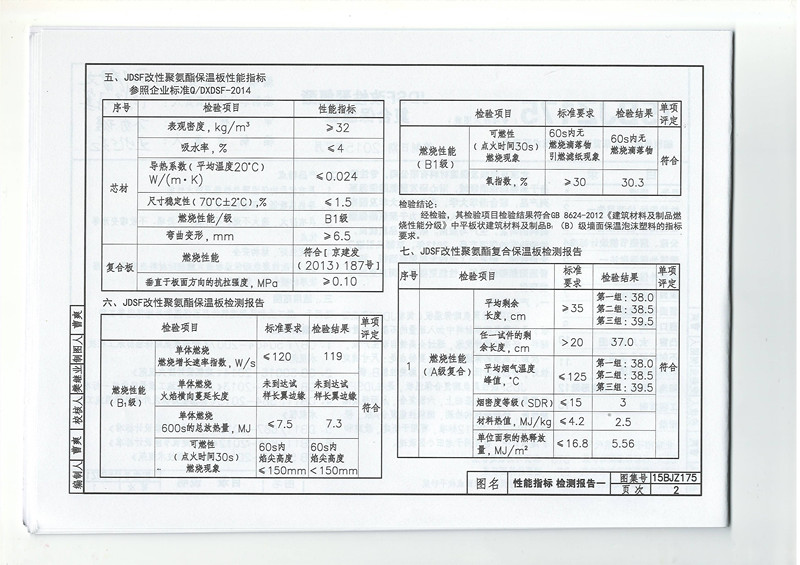 五、JDSF改性聚氨酯保温板性能指标
参照企业标准Q/DXDSF-2014
序号 检验项目 性能指标
芯材
表观密度，kg/m³ ≥32
吸水率，% ≤4
导热系数（平均温度20℃）
W/(m·K) ≤0.024
尺寸稳定性（70℃±2℃），% ≤1.5
燃烧性能/级 B1级
弯曲变形，mm ≥6.5
复合板
燃烧性能 符合[京建发
（2013）187号]
垂直于板面方向的抗拉强度，MPa ≥0.10
六、JDSF改性聚氨酯保温板检测报告
检验项目 标准要求 检验结果 单项
评定
燃烧性能
(B₁级)
单体燃烧
燃烧增长速率指数，W/s ≤120 119
单体燃烧 未到达试 未到达试
火焰横向蔓延长度 样长翼边缘 样长翼边缘
符合
单体燃烧
600s的总放热量，MJ ≤7.5 7.3
可燃性 60s内 60s内
（点火时间30s） 焰尖高度 焰尖高度
燃烧现象 ≤150mm <150mm
检验项目 标准要求 检验结果 单项
评定
燃烧性能
(B1级)
可燃性 60s内无
（点火时间30s） 燃烧滴落物
燃烧现象 引燃滤纸现象
60s内无
燃烧滴落物
符合
氧指数，% ≥30 30.3
检验结论：
经检验，其检验项目检验结果符合GB 8624-2012《建筑材料及制品燃
烧性能分级》中平板状建筑材料及制品B₁（B）级墙面保温泡沫塑料的指标
要求。
七、JDSF改性聚氨酯复合保温板检测报告
序号 检验项目 标准
要求 检验结果 单项
评定
1
燃烧性能
（A级复合）
平均剩余
长度，cm ≥35
第一组：38.0
第二组：38.5
第三组：39.5
任一试件的剩
余长度，cm >20 37.0
平均烟气温度
峰值，℃ ≤125
第一组：38.0
第二组：38.5
第三组：39.5
符合
烟密度等级(SDR) ≤15 3
材料热值，MJ/kg ≤4.2 2.5
单位面积的热释放
量，MJ/m² ≤16.8 5.56
图名 性能指标 检测报告一 图集号 15BJZ175
页次 2
编制人 曹爽
校核人 樊继业
制图人 曹爽